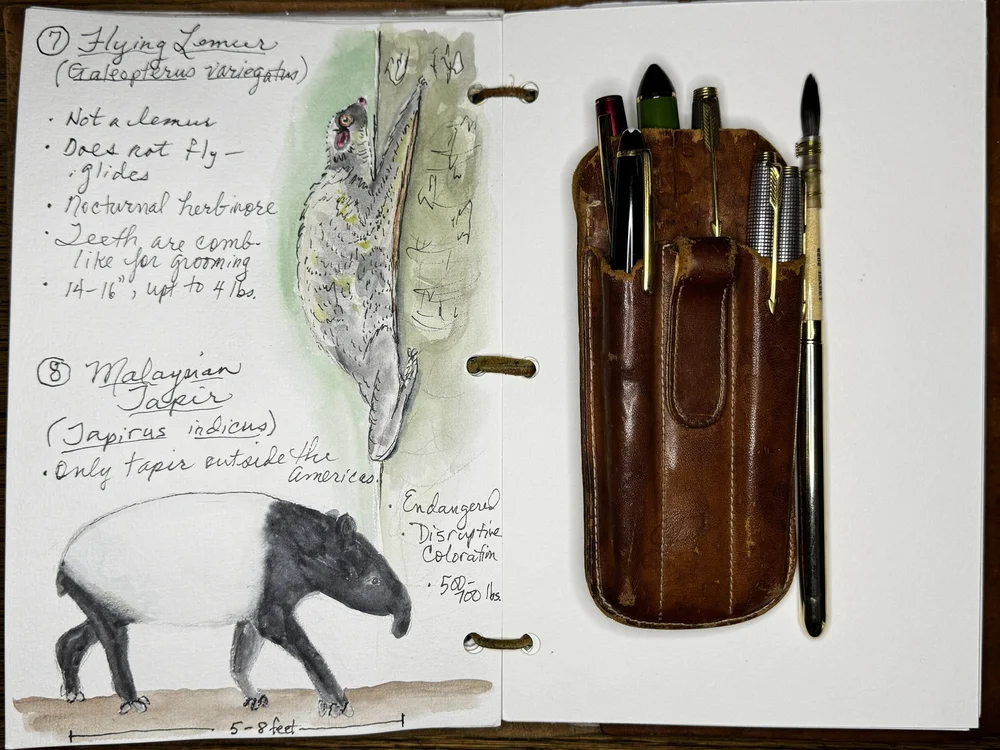 ⑦ Flying Lemur
(Galeopterus variegatus)
• Not a lemur
• Does not fly—
glides
• Nocturnal herbivore
• Teeth are comb-
like for grooming
• 14-16", up to 4 lbs.
⑧ Malaysian
Tapir
(Tapirus indicus)
• Only tapir outside the
Americas.
• Endangered
• Disruptive
Coloration
• 500-
700 lbs.
5-8 feet